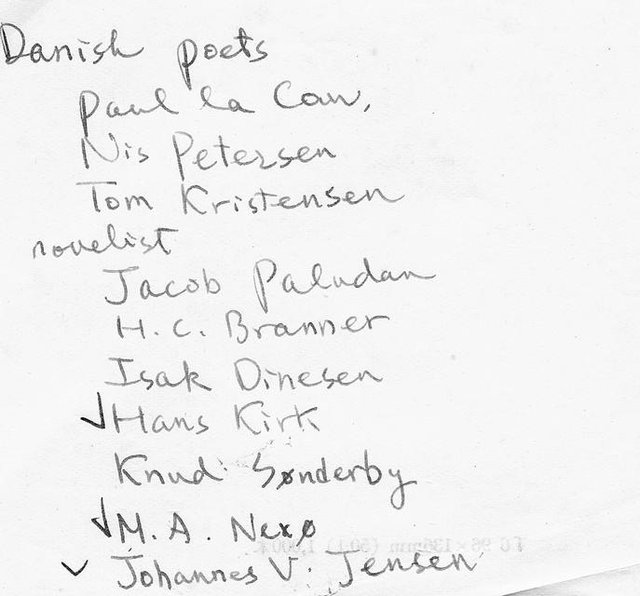 Danish poets
Paul la Cour,
Nis Petersen
Tom Kristensen
novelist
Jacob Paludan
H.C. Branner
Isak Dinesen
✓Hans Kirk
Knud Sønderby
✓M.A. Nexø
✓ Johannes V. Jensen